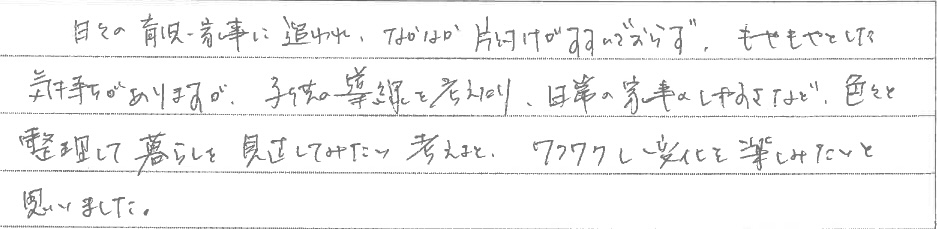 日々の育児・家事に追われ、なかなか片付けがすすんでおらず、もやもやとした
気持ちがありますが、子供の導線を考えたり、日常の家事のしやすさなど、色々と
整理して暮らしを見直してみたい考えると、ワクワクし変化を楽しみたいと
思いました。